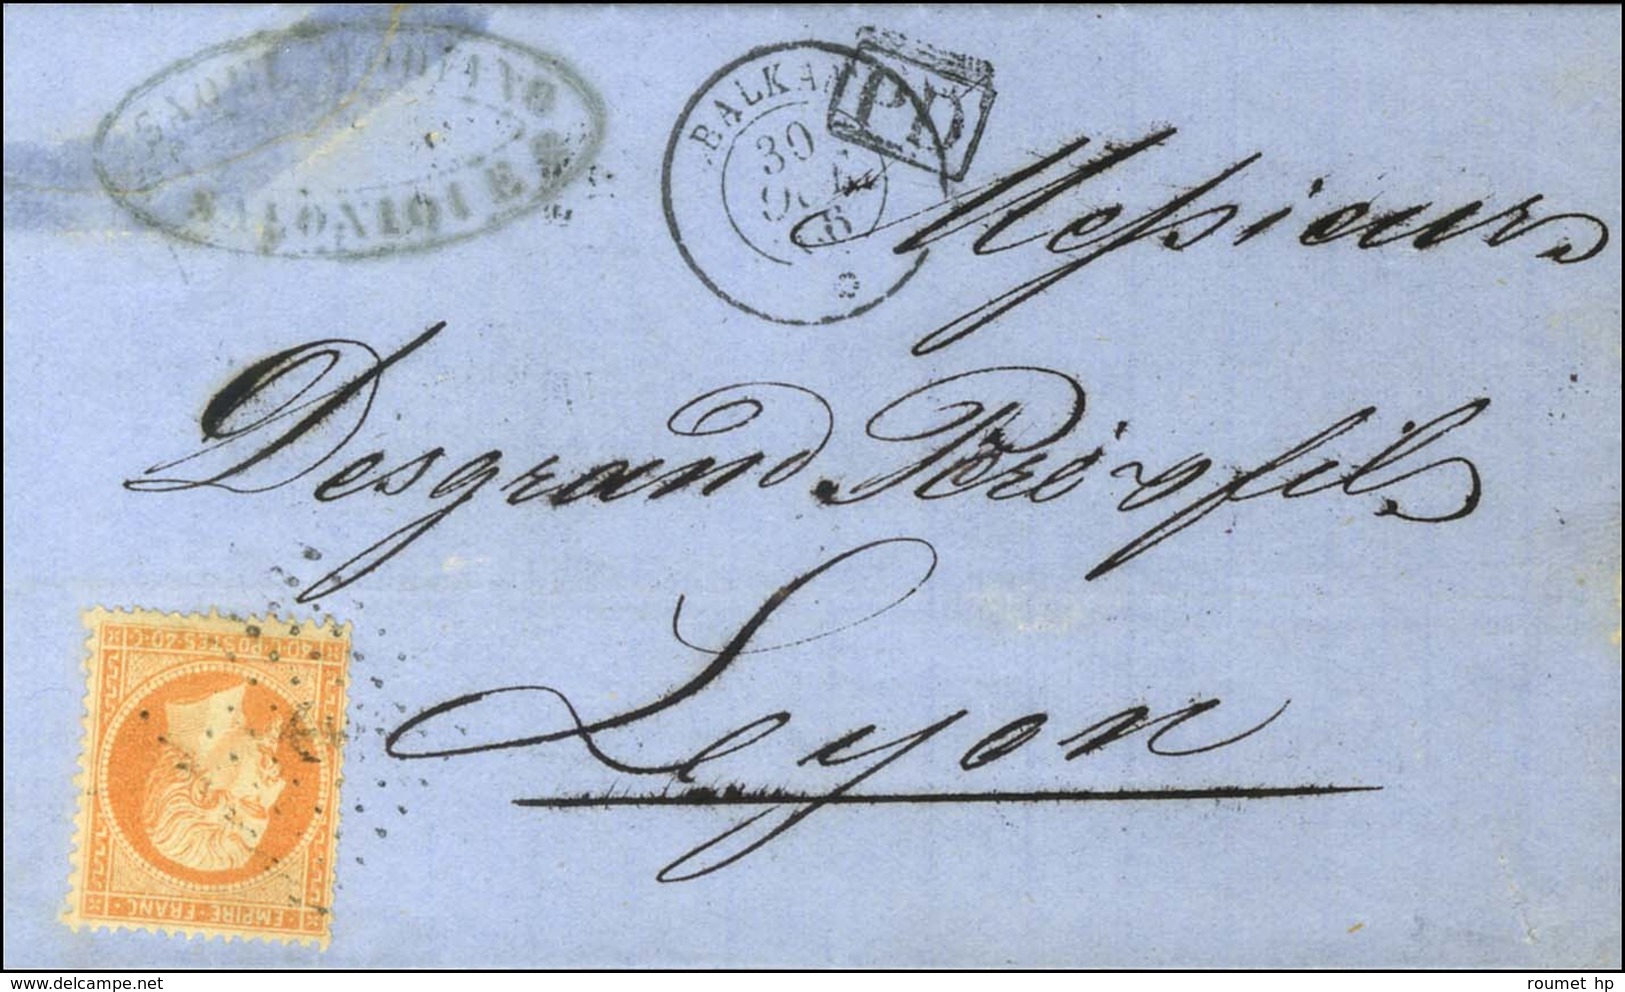 SALONIQUE
BALKAN
30
PD
Messieurs
Desgrand Père & fils
Lyon
40 C POSTES 40 C
EMPIRE FRANC
delcampe.net
roumet hp